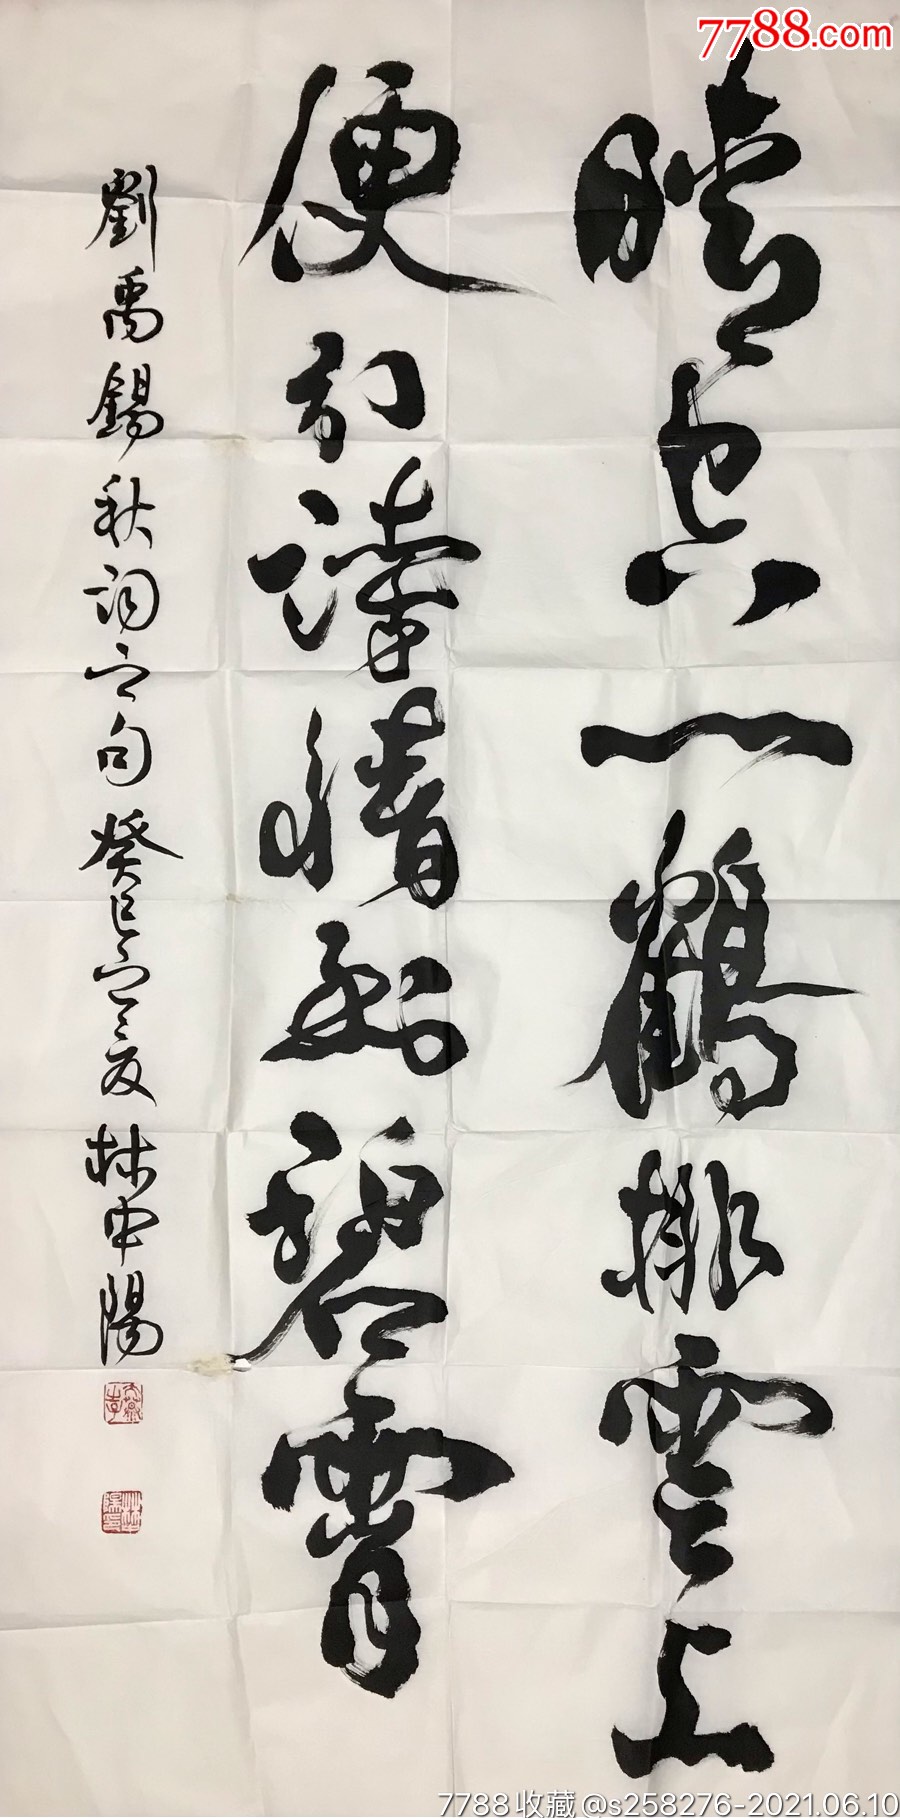 7788.com
晴空一鶴排雲上
便引詩情到碧霄
劉禹錫秋詞之句癸巳之夏林中陽
7788收藏@s258276-2021.06.10